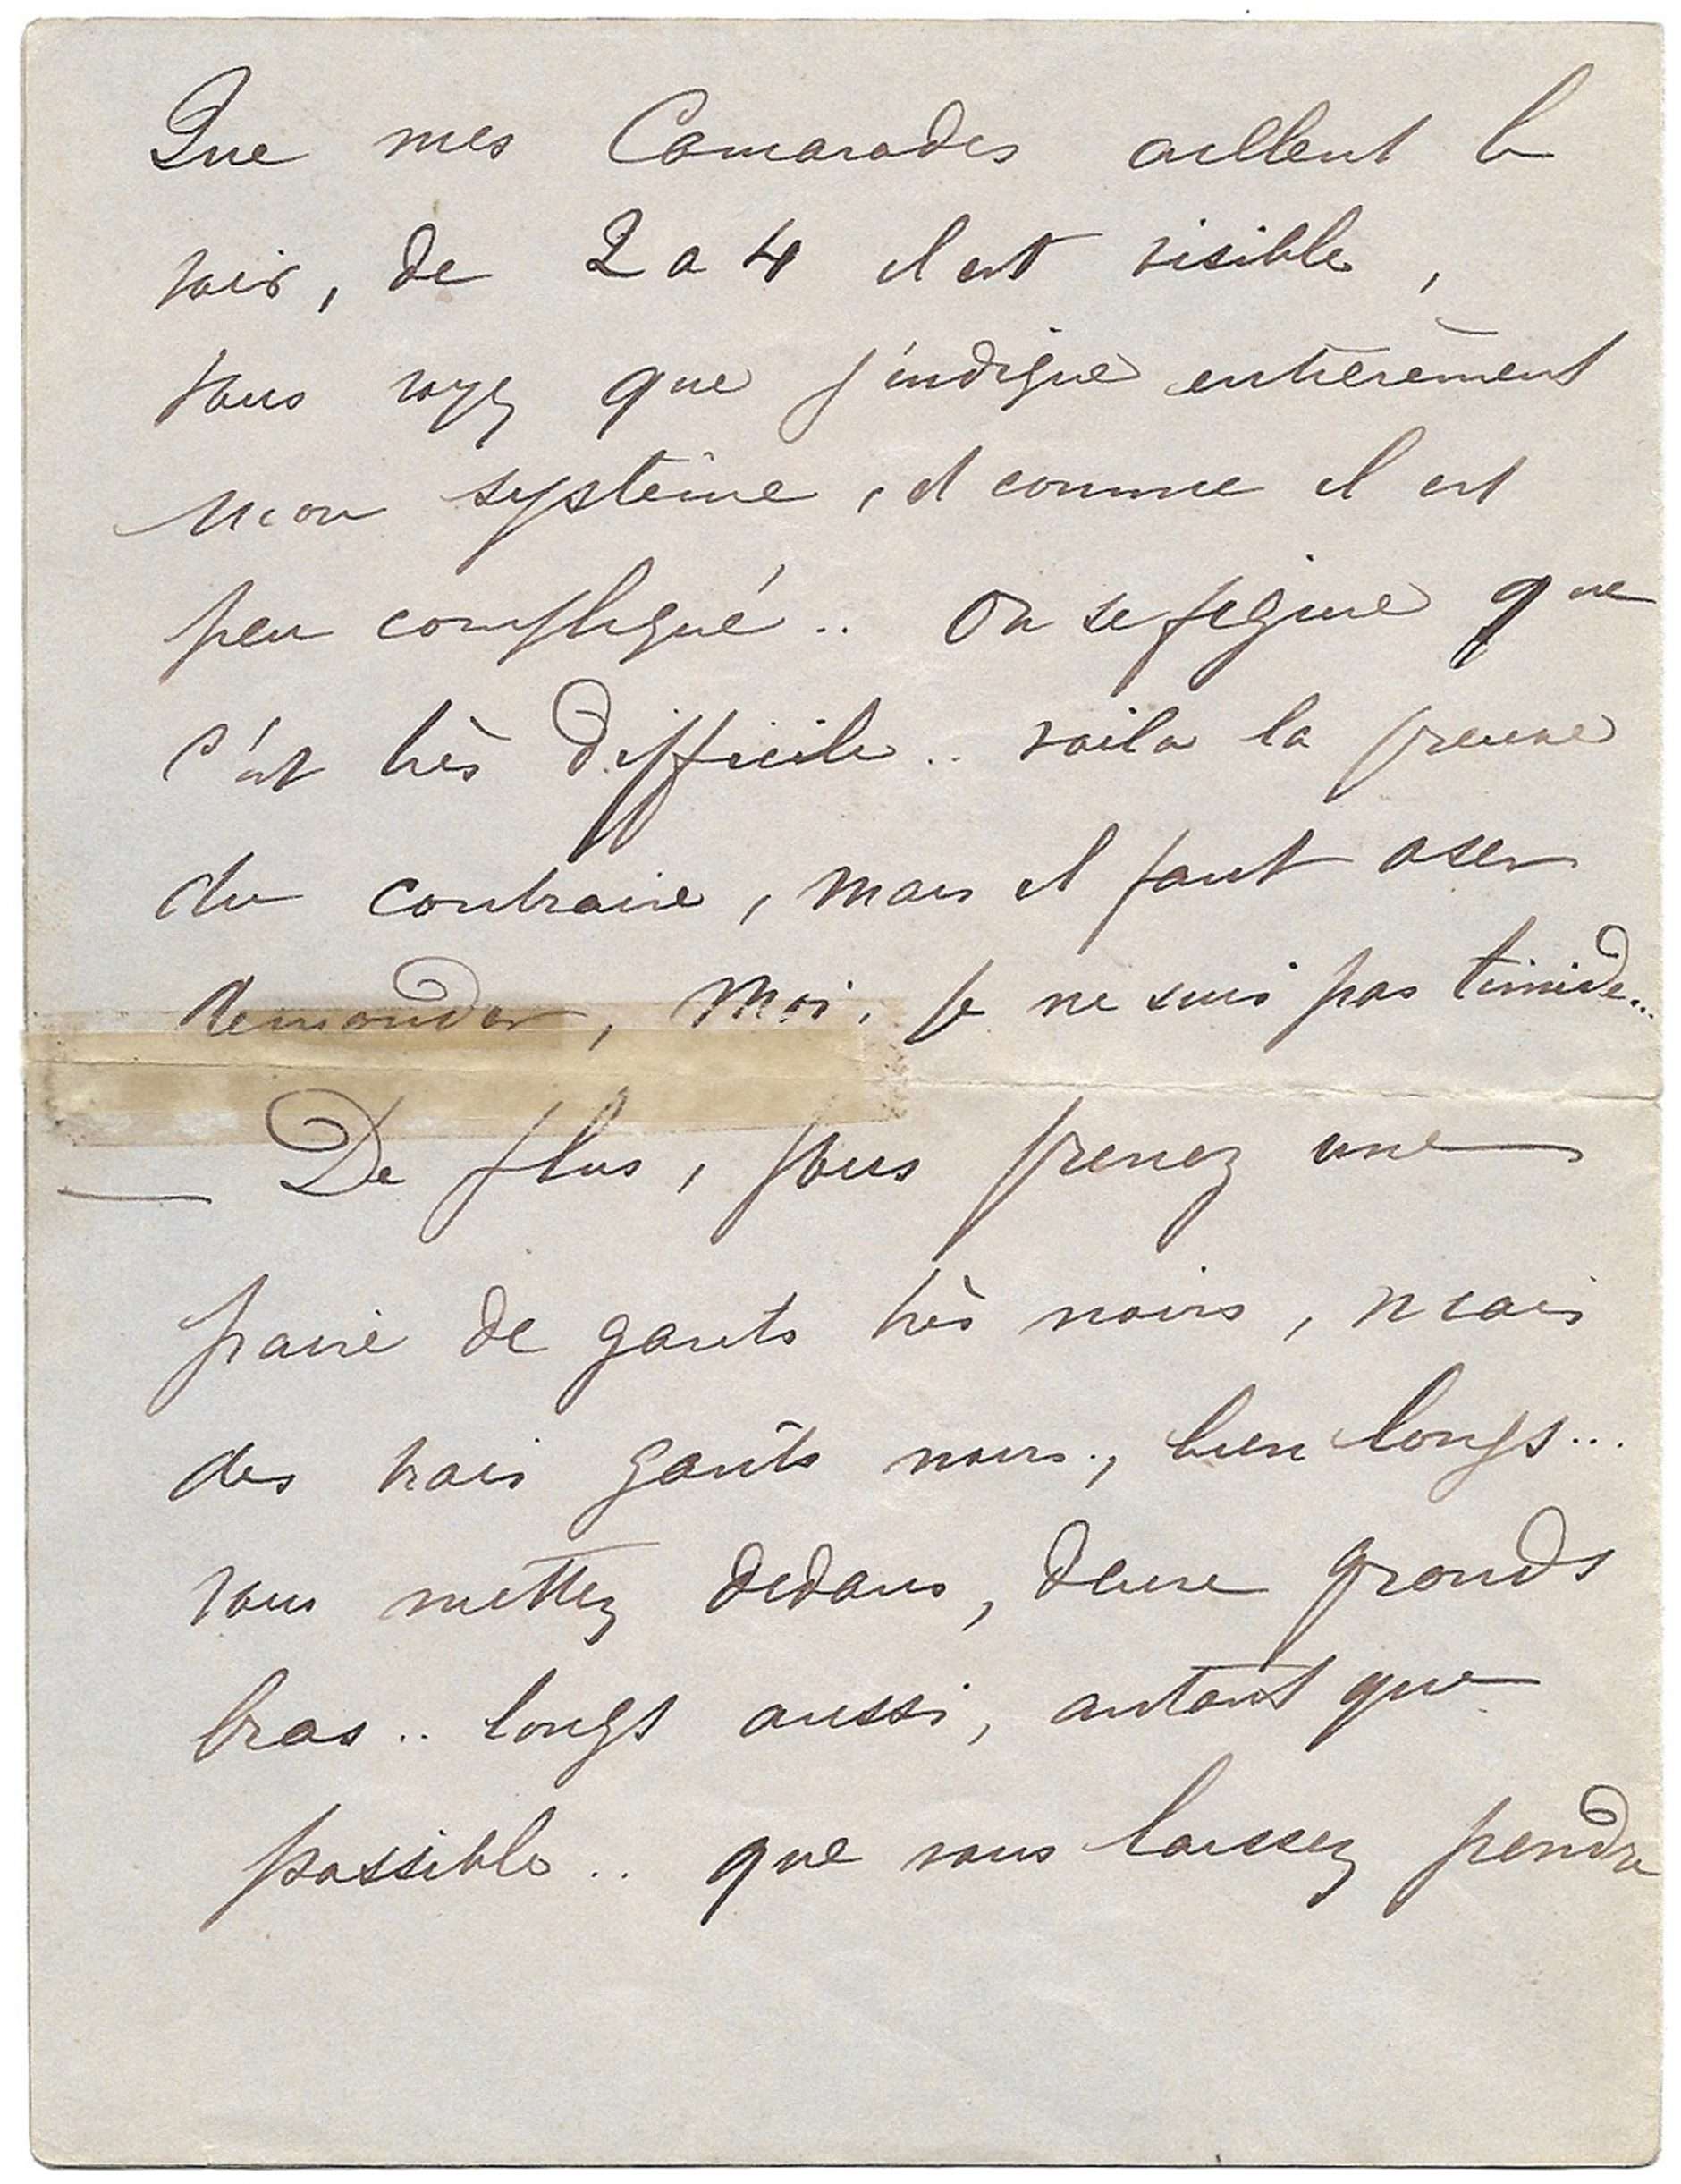 Que mes Camarades aillent le
voir, de 2 a 4 il est visible,
vous voyez que j'indique entièrement
mon système, et comme il est
peu compliqué.. On se figure que
c'est très difficile.. voila la preuve
du contraire, mais il faut oser
demander, Moi, je ne suis pas timide...
— De plus, vous prenez une
paire de gants très noirs, mais
des vrais gants noirs, bien longs...
vous mettez dedans, deux grands
bras.. longs aussi, autant que
possible.. que vous laissez pendre